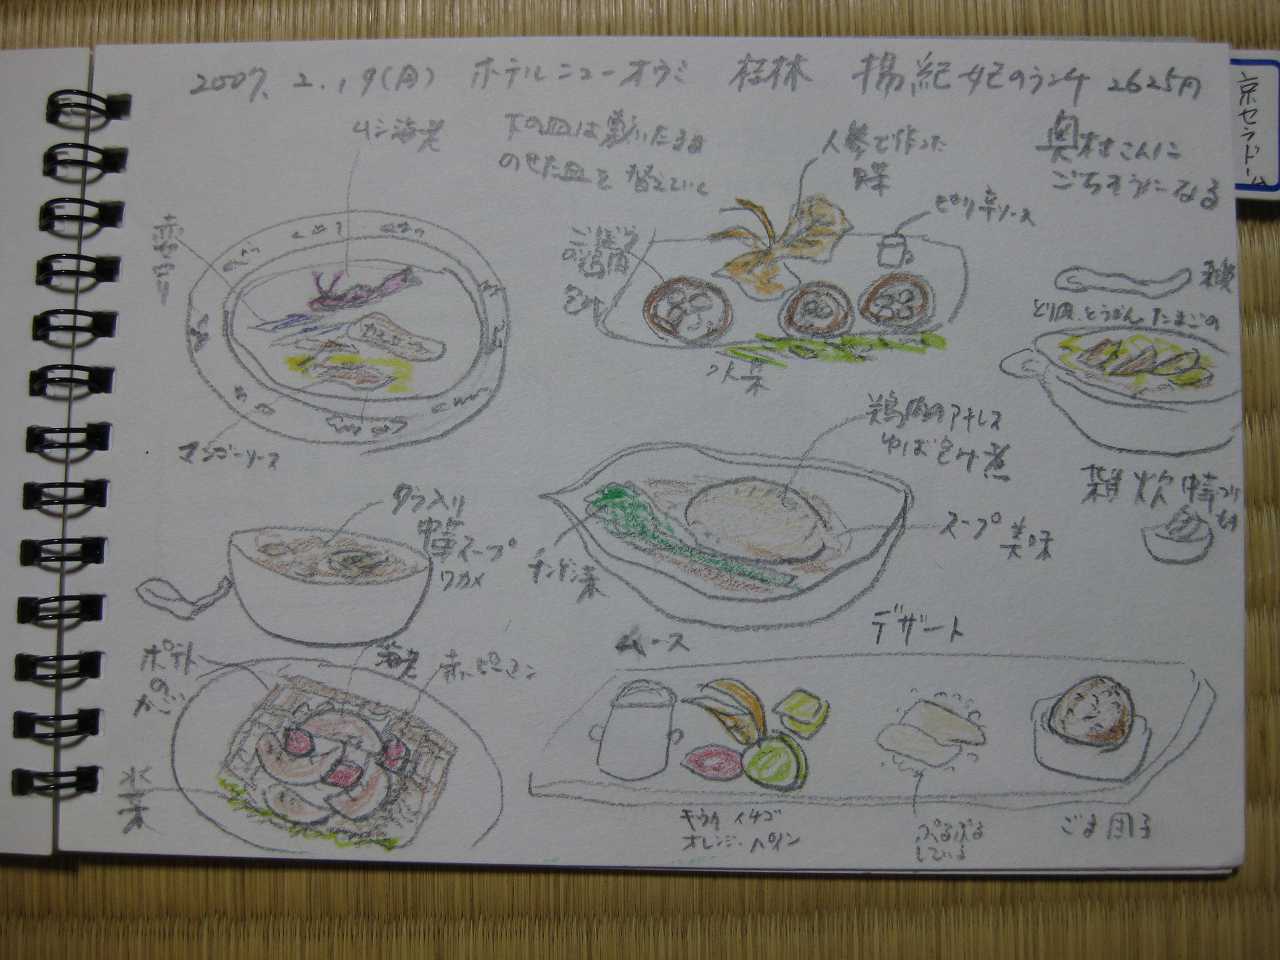 2007.2.19(月) ホテルニューオウミ 桂林 楊紀妃のランチ 2625円
京セラドーム
ムシ海老
下の皿は敷いたまま
のせた皿を替えていく
人参で作った
ピリ辛ソース
奥村さんに
ごちそうになる
ごぼう
の鶏肉
包み
水菜
とり肉、とうがん、たまごの
雑炊 中華
マンゴーソース
鶏肉のアキレス
ゆば包み煮
スープ 美味
チンゲン菜
入り
中華スープ
ワカメ
ポテト
の
かご
海老
赤ピーマン
水菜
デザート
ムース
キウイ イチゴ
オレンジ・パイン
ぷるぷる
している
ごま団子